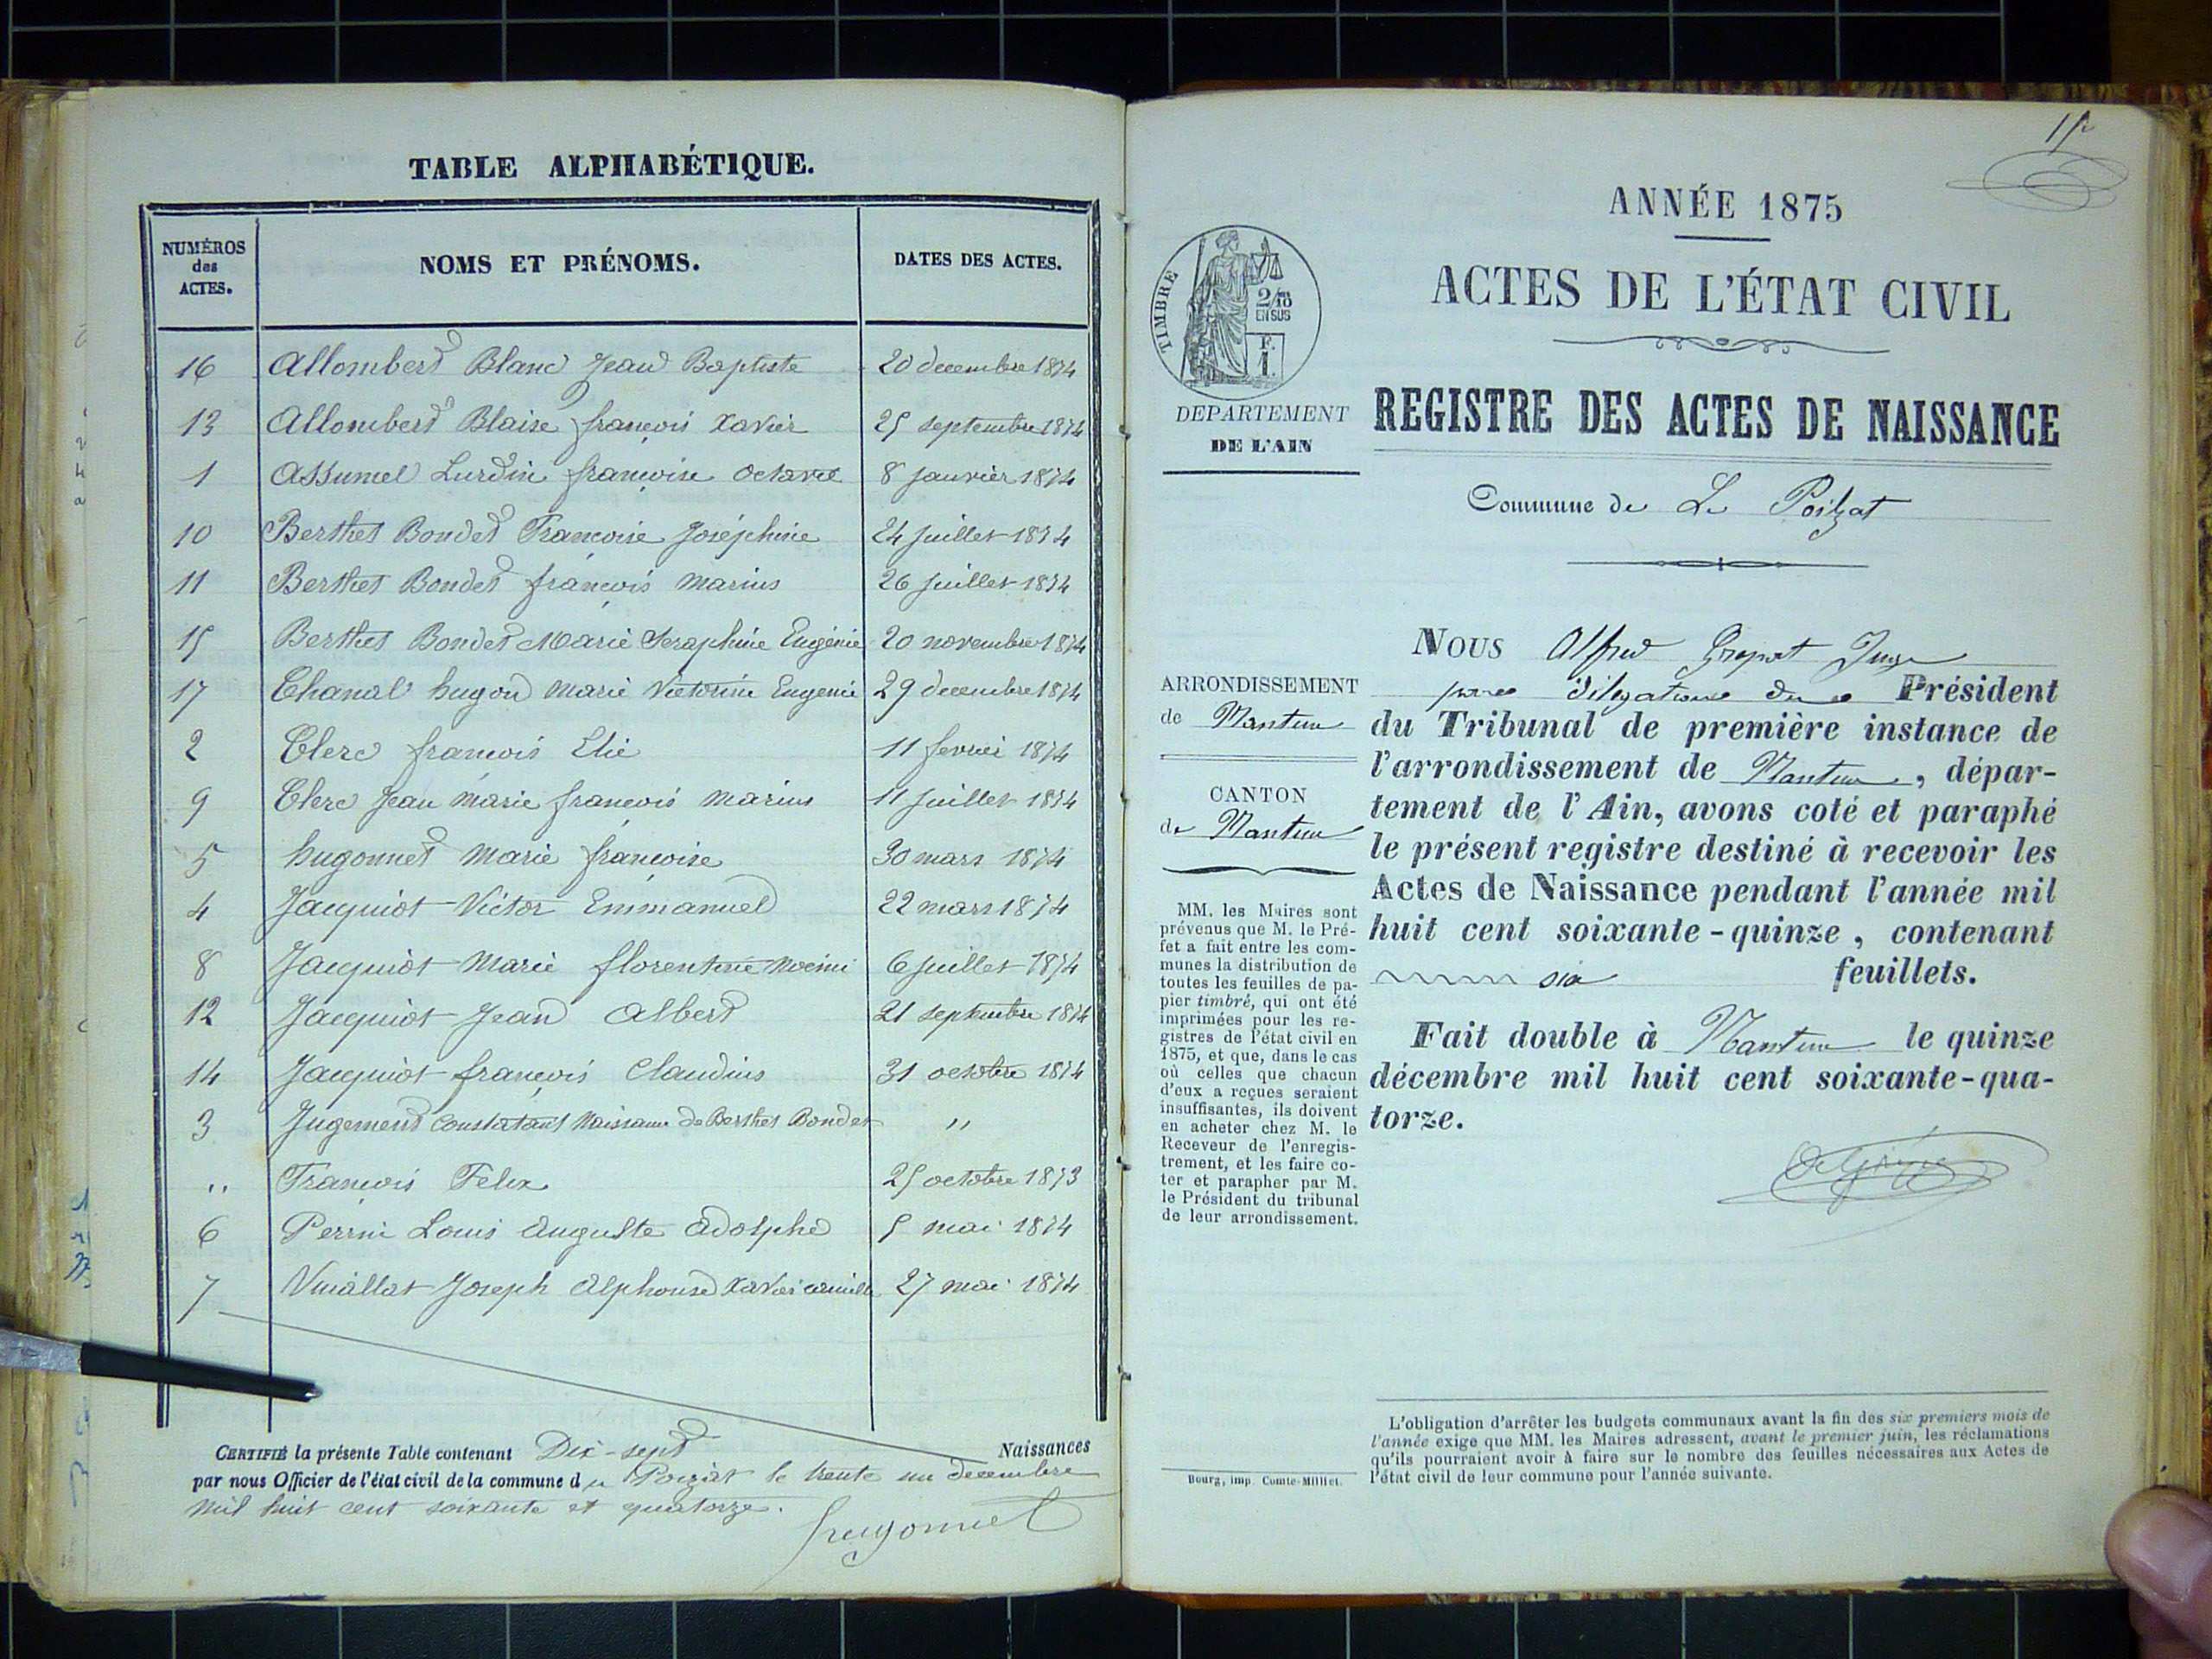 TABLE ALPHABÉTIQUE.
NUMÉROS des ACTES.
NOMS ET PRÉNOMS.
DATES DES ACTES.
16 Allombert Blanc Jean Baptiste 20 decembre 1874
13 Allombert Blaise françois Xavier 25 septembre 1874
1 Assumel Lurdin françoise octavie 8 janvier 1874
10 Berthet Bondet Françoise Joséphine 24 juillet 1874
11 Berthet Bondet françois marius 26 juillet 1874
15 Berthet Bondet Marie Seraphine Eugénie 20 novembre 1874
17 Chanal hugon marie Victorine Eugenie 29 decembre 1874
2 Clerc françois Elie 11 fevrier 1874
9 Clerc Jean marie françois marius 11 juillet 1874
5 hugonnet marie françoise 30 mars 1874
4 Jacquiot Victor Emmanuel 22 mars 1874
8 Jacquiot marie florentine noemi 6 juillet 1874
12 Jacquiot Jean Albert 21 septembre 1874
14 Jacquiot françois Claudius 31 octobre 1874
3 Jugement constatant naissance de Berthet Bondet "
" François Felix 25 octobre 1873
6 Perrin Louis Auguste Adolphe 5 mai 1874
7 Vuaillat Joseph Alphonse Xavier camille 27 mai 1874
CERTIFIÉ la présente Table contenant Dix-sept Naissances
par nous Officier de l'état civil de la commune du Poizat le trente un decembre
mil huit cent soixante et quatorze.
hugonnet
ANNÉE 1875
TIMBRE
2/10
EN SUS
F.
1.
ACTES DE L'ÉTAT CIVIL
DEPARTEMENT
DE L'AIN
REGISTRE DES ACTES DE NAISSANCE
Commune de Le Poizat
ARRONDISSEMENT
de Nantua
CANTON
de Nantua
MM. les Maires sont
prévenus que M. le Pré-
fet a fait entre les com-
munes la distribution de
toutes les feuilles de pa-
pier timbré, qui ont été
imprimées pour les re-
gistres de l'état civil en
1875, et que, dans le cas
où celles que chacun
d'eux a reçues seraient
insuffisantes, ils doivent
en acheter chez M. le
Receveur de l'enregis-
trement, et les faire co-
ter et parapher par M.
le Président du tribunal
de leur arrondissement.
NOUS Alfred Juge
par délégation du Président
du Tribunal de première instance de
l'arrondissement de Nantua, dépar-
tement de l'Ain, avons coté et paraphé
le présent registre destiné à recevoir les
Actes de Naissance pendant l'année mil
huit cent soixante-quinze, contenant
six feuillets.
Fait double à Nantua le quinze
décembre mil huit cent soixante-qua-
torze.
L'obligation d'arrêter les budgets communaux avant la fin des six premiers mois de
l'année exige que MM. les Maires adressent, avant le premier juin, les réclamations
qu'ils pourraient avoir à faire sur le nombre des feuilles nécessaires aux Actes de
l'état civil de leur commune pour l'année suivante.
Bourg, imp. Comte-Milliet.